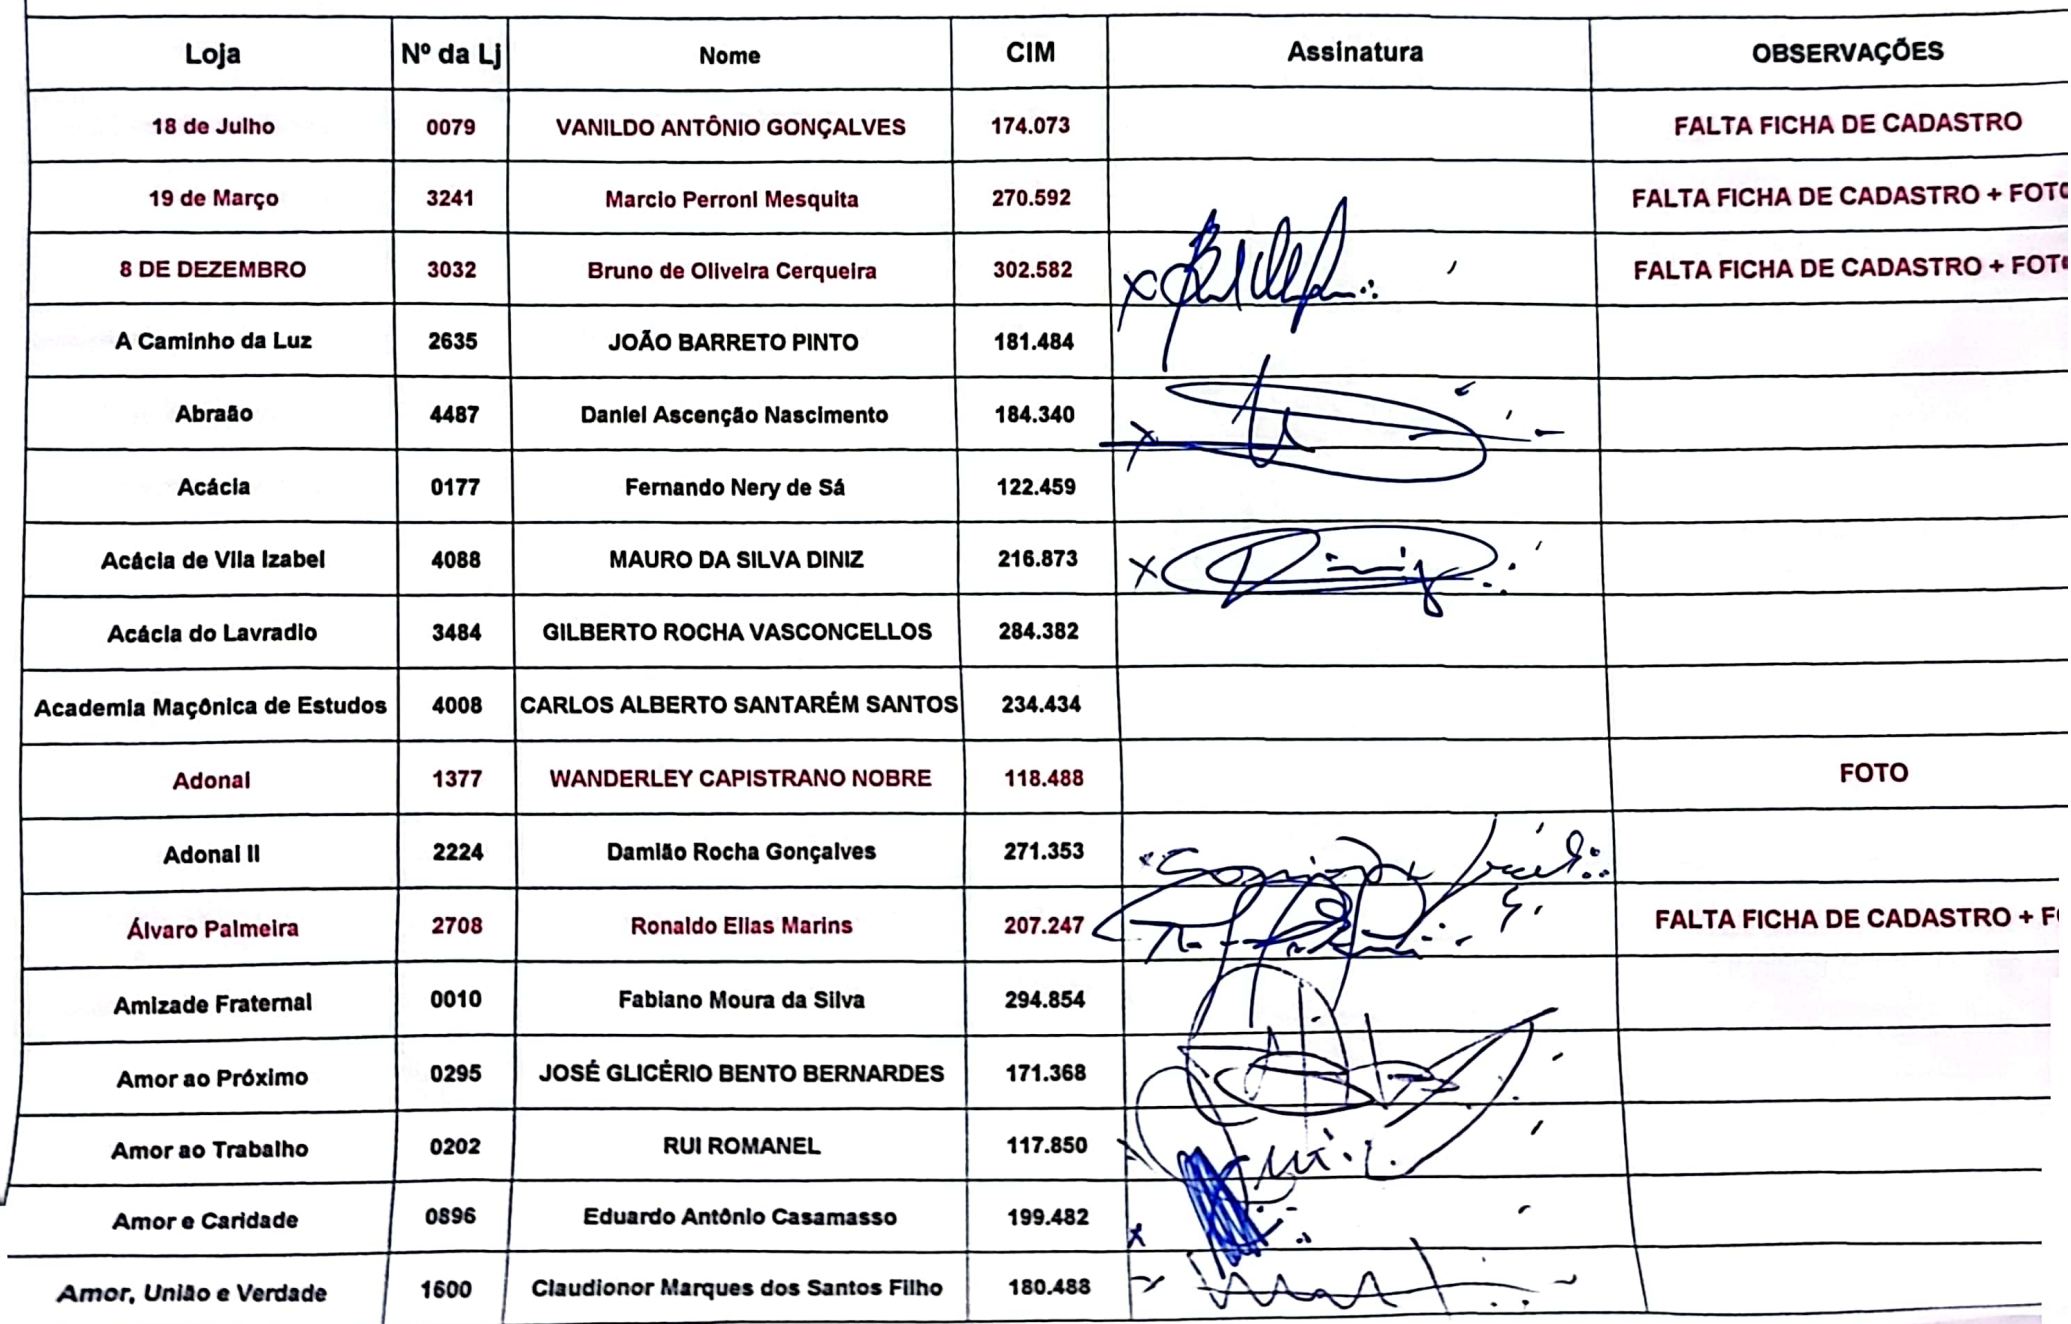 Loja Nº da Lj Nome CIM Assinatura OBSERVAÇÕES
18 de Julho 0079 VANILDO ANTÔNIO GONÇALVES 174.073 FALTA FICHA DE CADASTRO
19 de Março 3241 Marcio Perroni Mesquita 270.592 FALTA FICHA DE CADASTRO + FOTO
8 DE DEZEMBRO 3032 Bruno de Oliveira Cerqueira 302.582 FALTA FICHA DE CADASTRO + FOTO
A Caminho da Luz 2635 JOÃO BARRETO PINTO 181.484
Abraão 4487 Daniel Ascenção Nascimento 184.340
Acácia 0177 Fernando Nery de Sá 122.459
Acácia de Vila Izabel 4088 MAURO DA SILVA DINIZ 216.873
Acácia do Lavradio 3484 GILBERTO ROCHA VASCONCELLOS 284.382
Academia Maçônica de Estudos 4008 CARLOS ALBERTO SANTARÉM SANTOS 234.434
Adonai 1377 WANDERLEY CAPISTRANO NOBRE 118.488 FOTO
Adonai II 2224 Damião Rocha Gonçalves 271.353
Álvaro Palmeira 2708 Ronaldo Elias Marins 207.247 FALTA FICHA DE CADASTRO + F
Amizade Fraternal 0010 Fabiano Moura da Silva 294.854
Amor ao Próximo 0295 JOSÉ GLICÉRIO BENTO BERNARDES 171.368
Amor ao Trabalho 0202 RUI ROMANEL 117.850
Amor e Caridade 0896 Eduardo Antônio Casamasso 199.482
Amor, União e Verdade 1600 Claudionor Marques dos Santos Filho 180.488